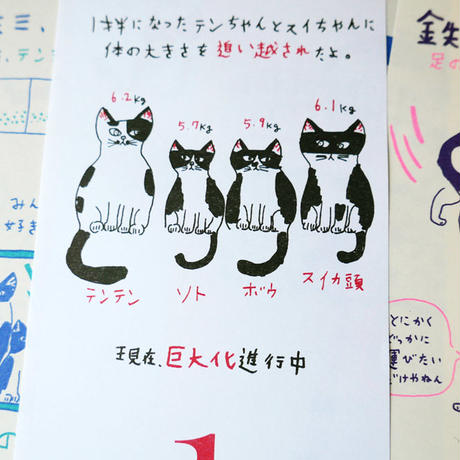 1才半になったテンちゃんとスイちゃんに
体の大きさを追い越されたよ。
6.2kg
5.7kg
5.9kg
6.1kg
テンテン
ソト
ボウ
スイカ頭
現在、巨大化進行中
1
ミ、
、テン
みん
好き
の
鉄
足の
とにかく
どっかに
運びたい
だけやねん